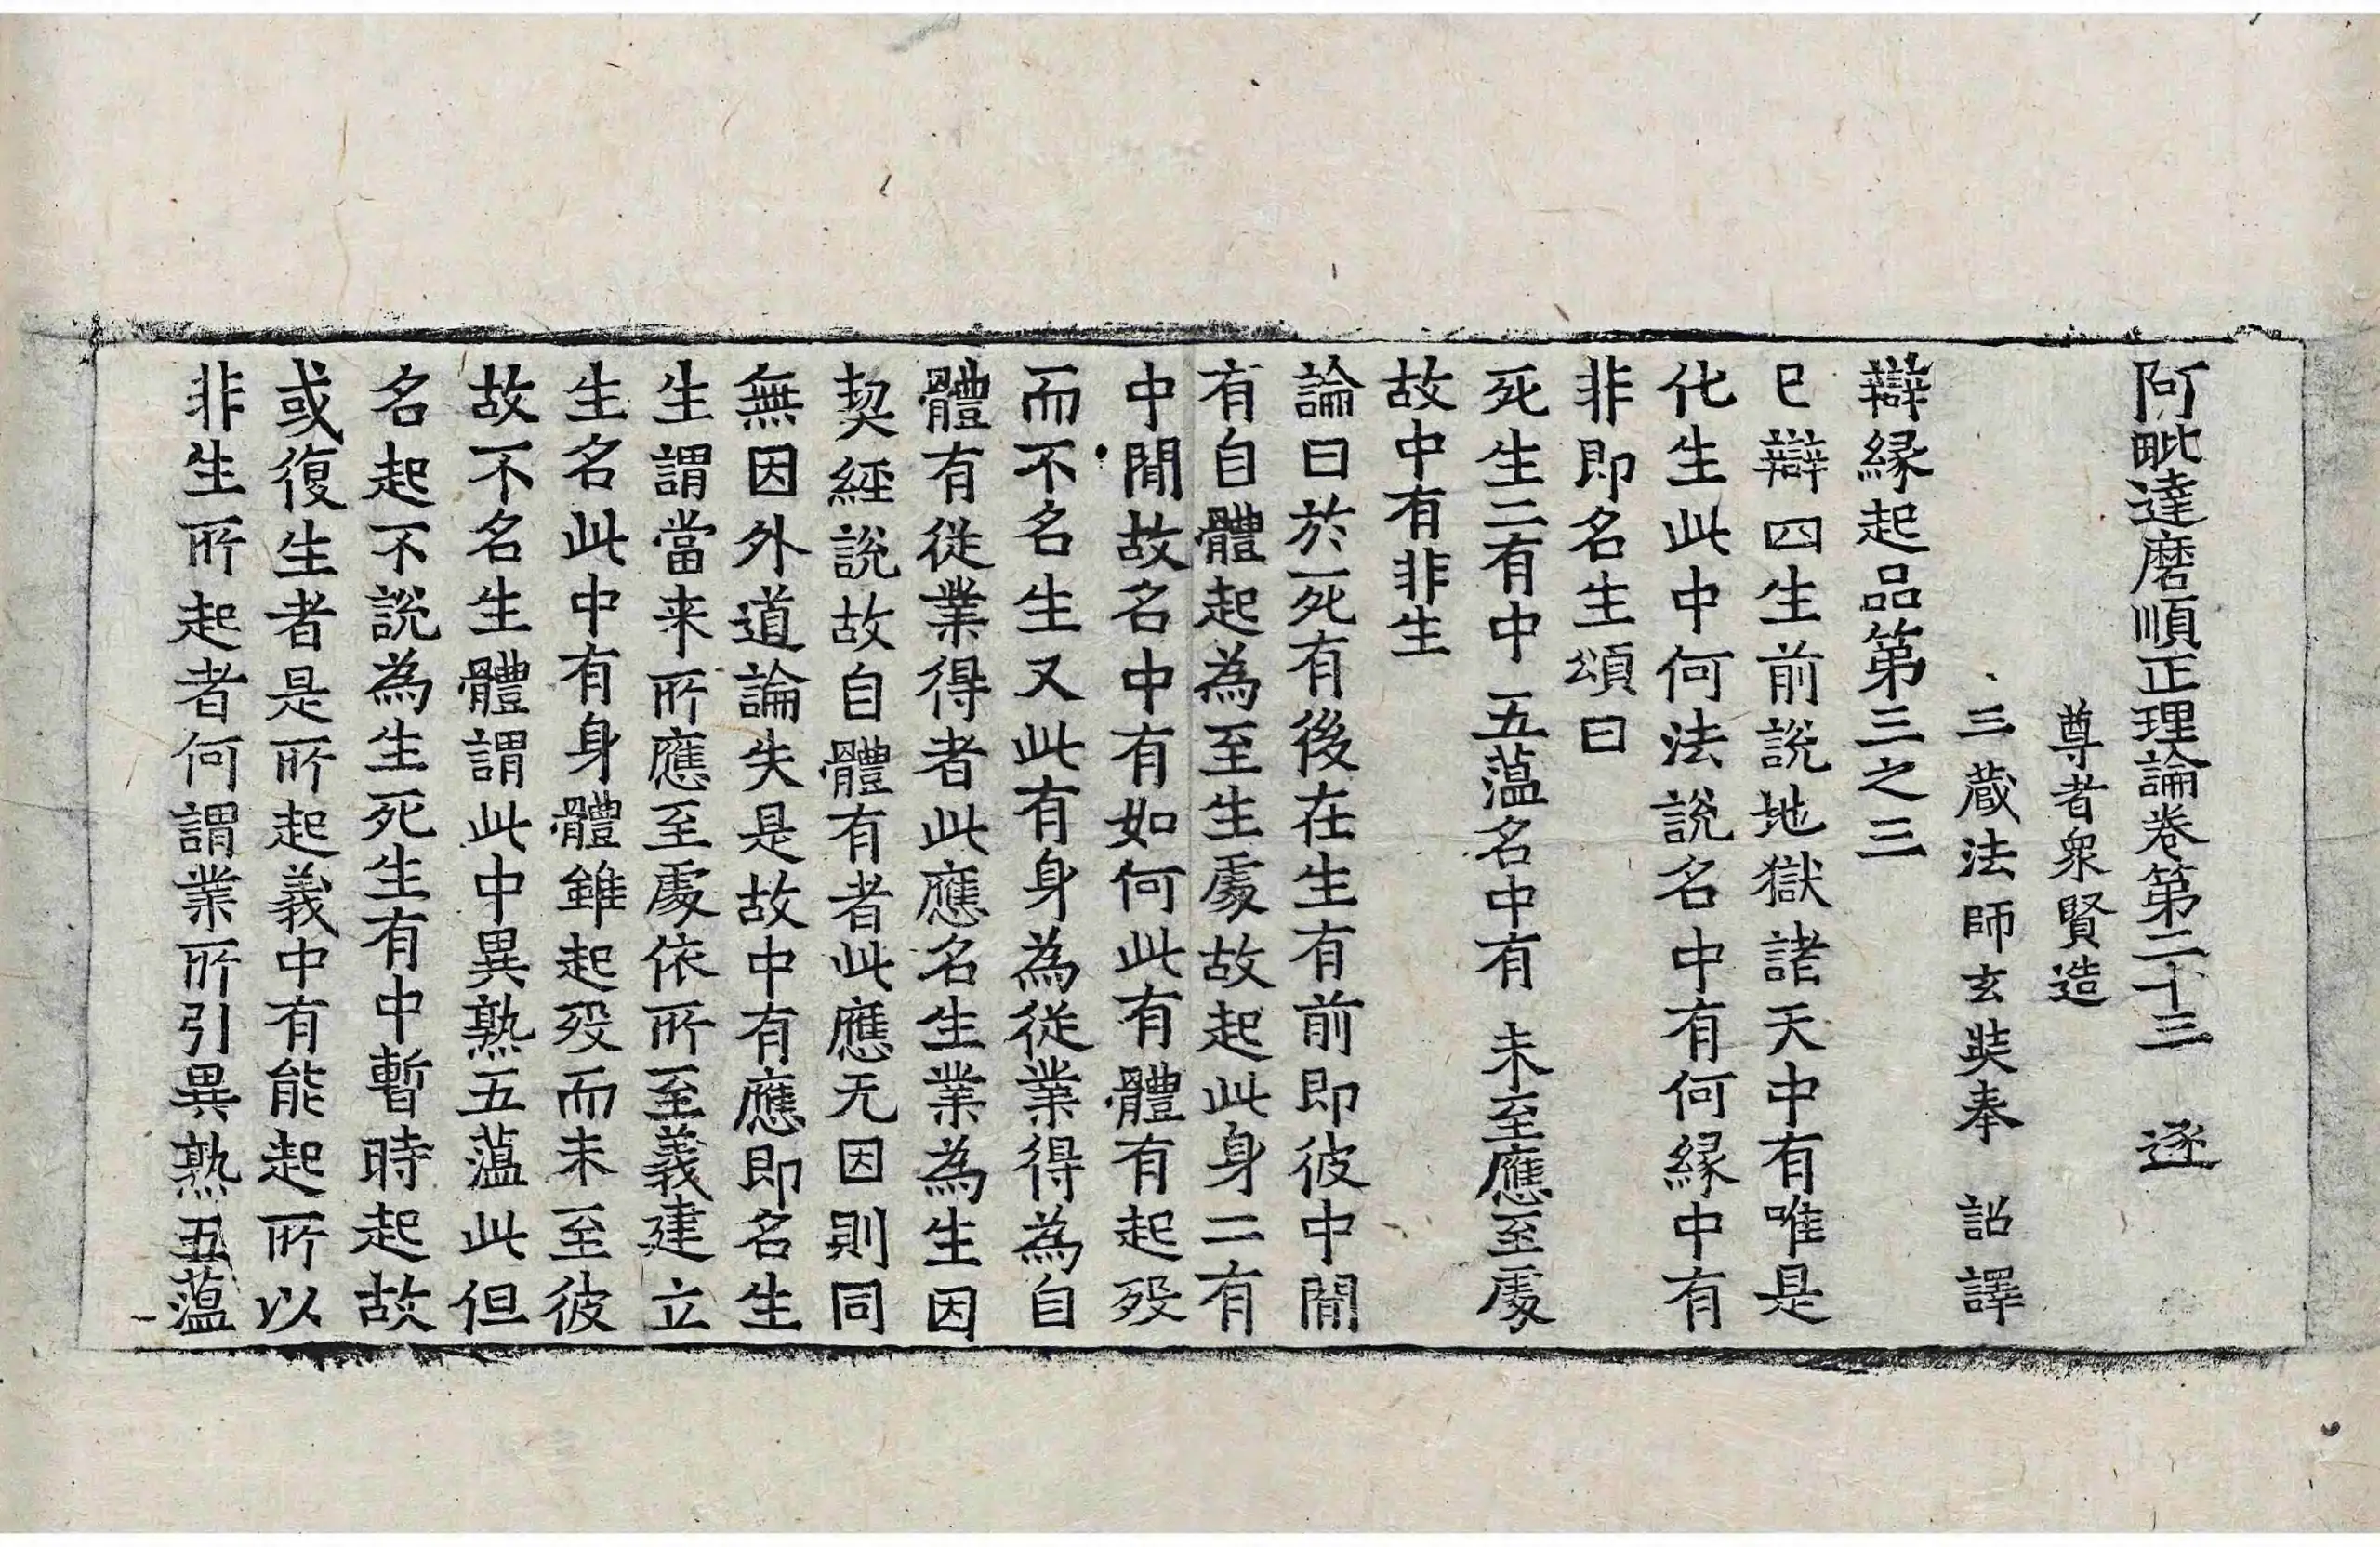 阿毗達磨順正理論卷第二十三　逐
尊者衆賢造
三蔵法師玄奘奉　詔譯
辯縁起品第三之三
已辯四生前說地獄諸天中有唯是
化生此中何法說名中有何縁中有
非即名生頌曰
死生二有中　五藴名中有　未至應至處
故中有非生
論曰於死有後在生有前即彼中閒
有自體起為至生處故起此身二有
中閒故名中有如何此有體有起殁
而不名生又此有身為從業得為自
體有從業得者此應名生業為生因
契經說故自體有者此應无因則同
無因外道論失是故中有應即名生
生謂當来所應至處依所至義建立
生名此中有身體雖起殁而未至彼
故不名生體謂此中異熟五藴此但
名起不說為生死生有中暫時起故
或復生者是所起義中有能起所以
非生所起者何謂業所引異熟五藴